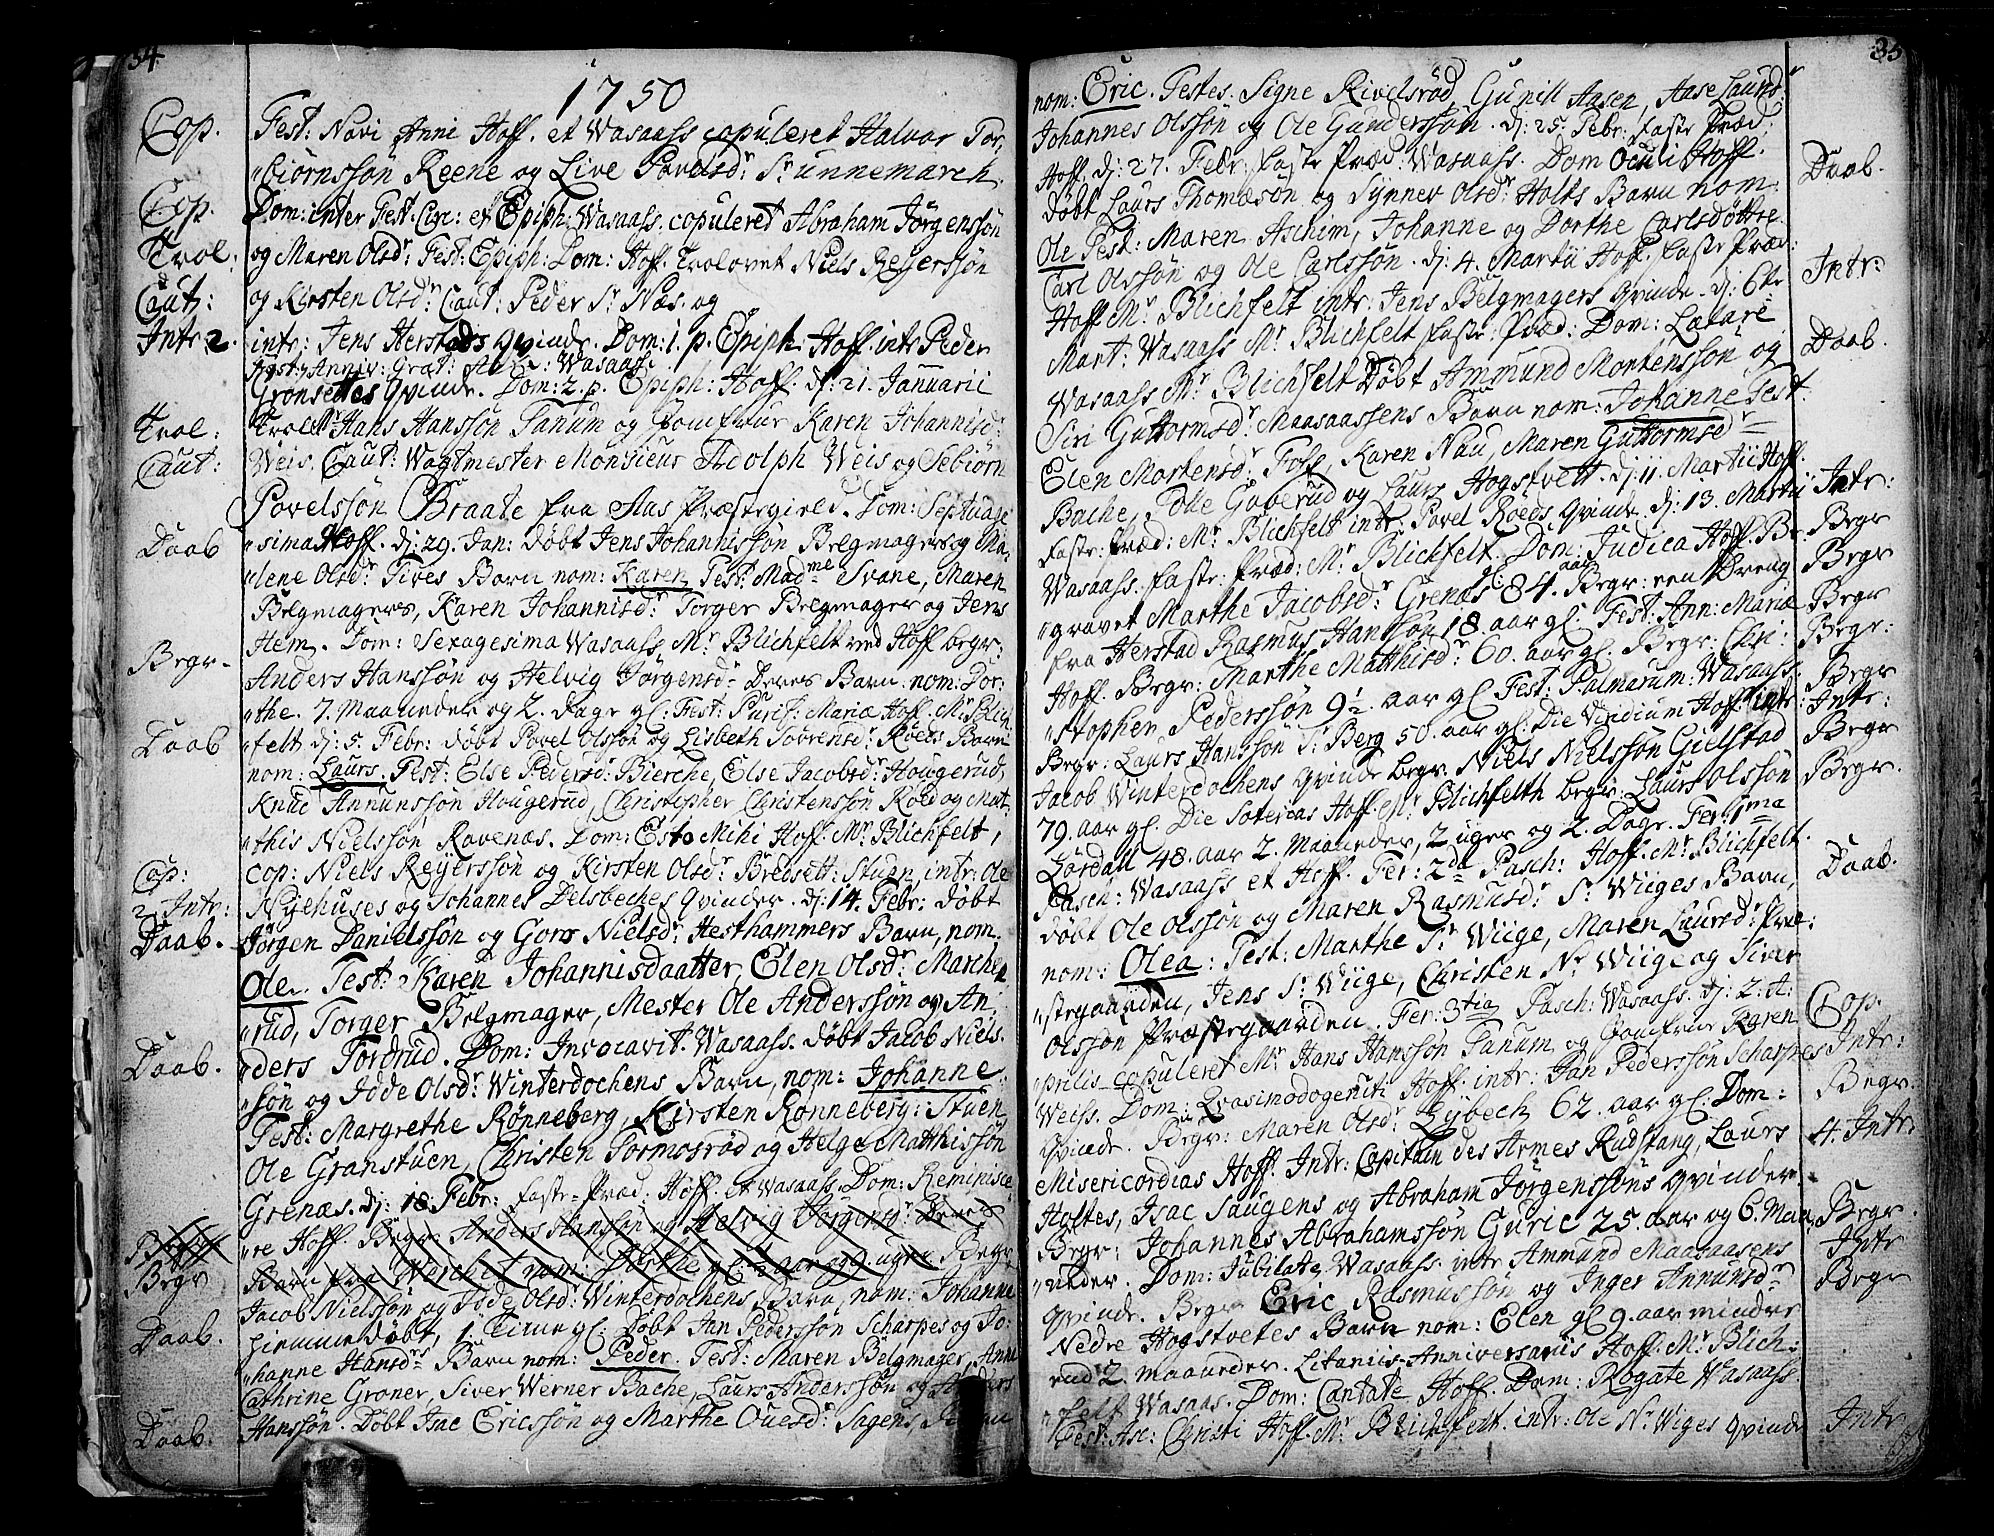 34
1750
Cop. Fest: Novi Anni Hoff. et Wasaass copuleret Halvor Tor,
"biørnssøn Reene og Live Povelsdr Sr unnemarck.
Cop. Dom: inter Fest. Circ: et Epiph: Wasaass. copuleret Abraham Jørgenssøn
Trol: og Maren Olsdr Fest: Epiph: Dom: Hoff. Trolovet Niels Reyerssøn
Caut: og Kirsten Olsdr Caut: Peder Sr Næs. og
Intr 2. intr: Jens Herstads qvinde. Dom: 1. p. Epiph: Hoff. intr Peder
Fest: Anniv: Grat: Act: Wasaass
Grønsettes qvinde. Dom: 2. p. Epiph: Hoff. d: 21. Januarii
Trol: Trol: Mr Hans Hanssøn Tanum og Jomfrue Karen Johannisdr
Caut: Weis. Caut: Wagtmester Monsieur Adolph Weis og Sebiørn
Povelssøn Braate fra Aas Præstegield. Dom: Septuage
Daab "sima Hoff. d: 29. Jan: døbt Jens Johannissøn Belgmagers og Ma-
"lene Olsdr Tives Barn nom: Karen Test: Madme Svane, Maren
Belgmagers, Karen Johannisdr Torger Belgmager og Jens
Hem. Dom: Sexagesima Wasaass Mr Blichfelt ved Hoff begr:
Begr. Anders Hanssøn og Helvig Jørgensdr Deres Barn. nom: Dor-
"the. 7. Maaneder og 2. Dage gl: Fest: Purif: Mariæ Hoff. Mr Blich
Daab felt d: 5. Febr: døbt Povel Olssøn og Lisbeth Sørrensdr Roeds Barn
nom: Laurs. Test: Else Pedersdr Bierche, Else Jacobsdr Hougerud,
Knud Annunssøn Hougerud, Christopher Christenssøn Roed og Mat
"this Nielssøn Ravenæs. Dom: Esto Mihi Hoff. Mr Blichfelt,
Cop: cop: Niels Reyerssøn og Kirsten Olsdr Bredsett: Stuen intr: Ole
2. Intr: Nyehuses og Johannes Delsbeches qvinder. d: 14. Febr: døbt
Daab. Jørgen Danielssøn og Goro Nielsdr Hesthammers Barn, nom.
Ole. Test: Karen Johannisdaatter, Elen Olsdr Marche
"rud, Torger Belgmager, Mester Ole Anderssøn og An,
Daab. "ders Tordrud. Dom: Invocavit. Wasaass. døbt Jacob Niels.
"søn og Jøde Olsdr Winterdochens Barn, nom: Johanne
Test: Margrethe Rønneberg, Kirsten Rønneberg: Stuen
Ole Granstuen, Christen Tormosrød og Helge Matthissøn
Grenæs. d: 18. Febr: faste-Præd: Hoff. et Wasaass. Dom: Reminisce
Begr "re Hoff. Begr Anders Hanssøn og Helvig Jørgensdr Deres
Begr Barn fra Werchet nom: Dorthe gl: aar og uger Begr
Jacob Nielssøn og Jøde Olsdr Winterdochens Barn, nom: Johanne
Daab. hiemme døbt, 1. Time gl. Døbt Jan Pederssøn Scharpes og Jo-
"hanne Hansdrs Barn nom: Peder. Test: Maren Belgmager, Anne
Cathrine Groner, Siver Werner Bache, Laurs Anderssøn og Anders
Daab: Hanssøn. Døbt Isac Ericssøn og Marthe Ouesdr Sagens,
35
nom: Eric. Testes. Signe Rivelsrød, Gunill Aasen, Aase Laursdr
Johannes Olssøn og Ole Gunderssøn. d: 25. Febr: faste Præd:
Hoff. d: 27. Febr: faste Præd: Wasaass. Dom Oculi Hoff.
døbt Laurs Thomæsøn og Synnev Olsdr Holts Barn nom: Daab.
Ole Test: Maren Aschim, Johanne og Dorthe Carlsdøttre
Carl Olssøn og Ole Carlssøn. d: 4. Martii Hoff. faste Præd:
Hoff Mr Blichfelt intr: Jens Belgmagers qvinde. d: 6te Intr:
Mart: Wasaass Mr Blichfelt faste: Præd: Dom: Lætare
Wasaass Mr Blichfelt Døbt Ammund Mortenssøn og Daab.
Siri Guttormsdr Maasaassens Barn nom: Johanne Test:
Elen Mortensdr Foss, Karen Nau, Maren Guttormsdr
Bache, Polle Gaberud og Laurs Hogstvett. d: 11. Martii Hoff.
faste: Præd: Mr Blichfelt intr: Povel Roeds qvinde. d: 13. Martii Intr:
Wasaass. faste: Præd: Mr Blichfelt. Dom: Judica Hoff. Be- Begr
"gravet Marthe Jacobsdr Grenæs 84. aar Begr: een Dreng Begr
fra Herstad Rasmus Hanssøn 18. aar gl. Fest: Ann: Mariæ Begr
Hoff. Begr: Marthe Matthisdr 60. aar gl. Begr: Chri- Begr:
"stopher Pederssøn 9½. aar gl Fest: Palmarum: Wasaass: Begr
Begr: Laurs Hanssøn Sr Berg 50. aar gl: Die Viridium Hoff intr: Intr:
Jacob Winterdochens qvinde begr. Niels Nielssøn Gielstad Begr
79. aar gl. Die Soterias Hoff. Mr Blichfelth begr: Laurs Olssøn Begr.
Lørdall 48. aar 2. Maaneder, 2 uger og 2. Dage. Fer. 1ma
Pasch: Wasaass et Hoff. Fer: 2da Pasch: Hoff. Mr Blichfelt.
døbt Ole Olssøn og Maren Rasmusdr Sr Wiiges Barn, Daab.
nom: Olea: Test: Marthe Sr Wiige, Maren Laursdr Præ:
"stegaarden, Jens Sr Wiige, Christen Nr Wiige og Siver
Olssøn Præstegaarden. Fer: 3tia Pasch: Wasaass. d: 2: A:
"prilis copuleret Mr Hans Hanssøn Tanum og Jomfrue Karen Cop.
Weiss. Dom: Qvasimodogeniti Hoff. intr: Jan Pederssøn Scharpes Intr:
qvinde. Begr: Maren Olsdr Lybeck 62. aar gl: Dom: Begr.
Misericordias Hoff. Intr: Capitain des Armes Rudstang, Laurs 4. Intr:
Holtes, Isac Saugens og Abraham Jørgenssøns qvinder.
Begr: Johannes Abrahamssøn Guric 25. aar og 6. Maa, Begr.
"neder. Dom: Jubilate, Wasaass. intr Ammund Maasaasens Intr
qvinde. Begr Eric Rasmussøn og Inger Annunsdr Begr
Nedre Hogstvetes Barn nom: Elen gl 9. aar mindre
end 2. maaneder. Litaniis-Anniversariis Hoff. Mr Blich-
"felt Wasaas. Dom: Cantate Hoff. Dom: Rogate Wasaass
Fest: Asc: Christi Hoff. Mr Blichfelt. intr: Ole Nr Wiges qvinde Intr